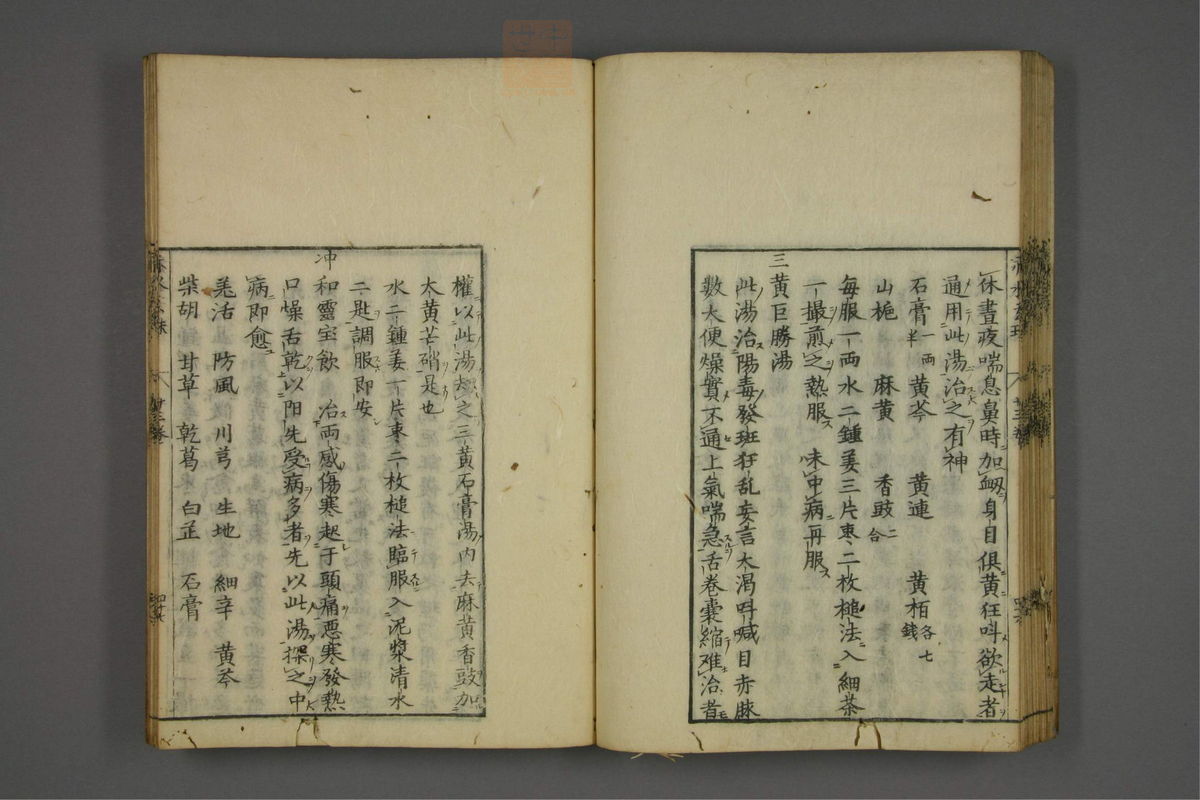 休晝夜喘息鼻時加衂身目俱黄狂呌欲走者
通用此湯治之有神
石膏一両半 黄芩 黄連 黄栢各七錢
山梔 麻黄 香豉二合
毎服一両水二鍾姜三片枣二枚槌法入細茶
一撮煎之熱服 未中病再服
三黄巨勝湯
此湯治陽毒發斑狂乱妄言大渴呌喊目赤脉
數大便燥實不通上氣喘急舌卷囊縮难治者
權以此湯劫之三黄石膏湯内去麻黄香豉加
大黄芒硝是也
水二鍾姜一片枣二枚槌法臨服入泥漿清水
二匙調服即安
冲和靈宝飲 治両感傷寒起于頭痛悪寒發熱
口燥舌乾以阳先受病多者先以此湯探之中
病即愈
羌活 防風 川芎 生地 細辛 黄芩
柴胡 甘草 乾葛 白芷 石膏